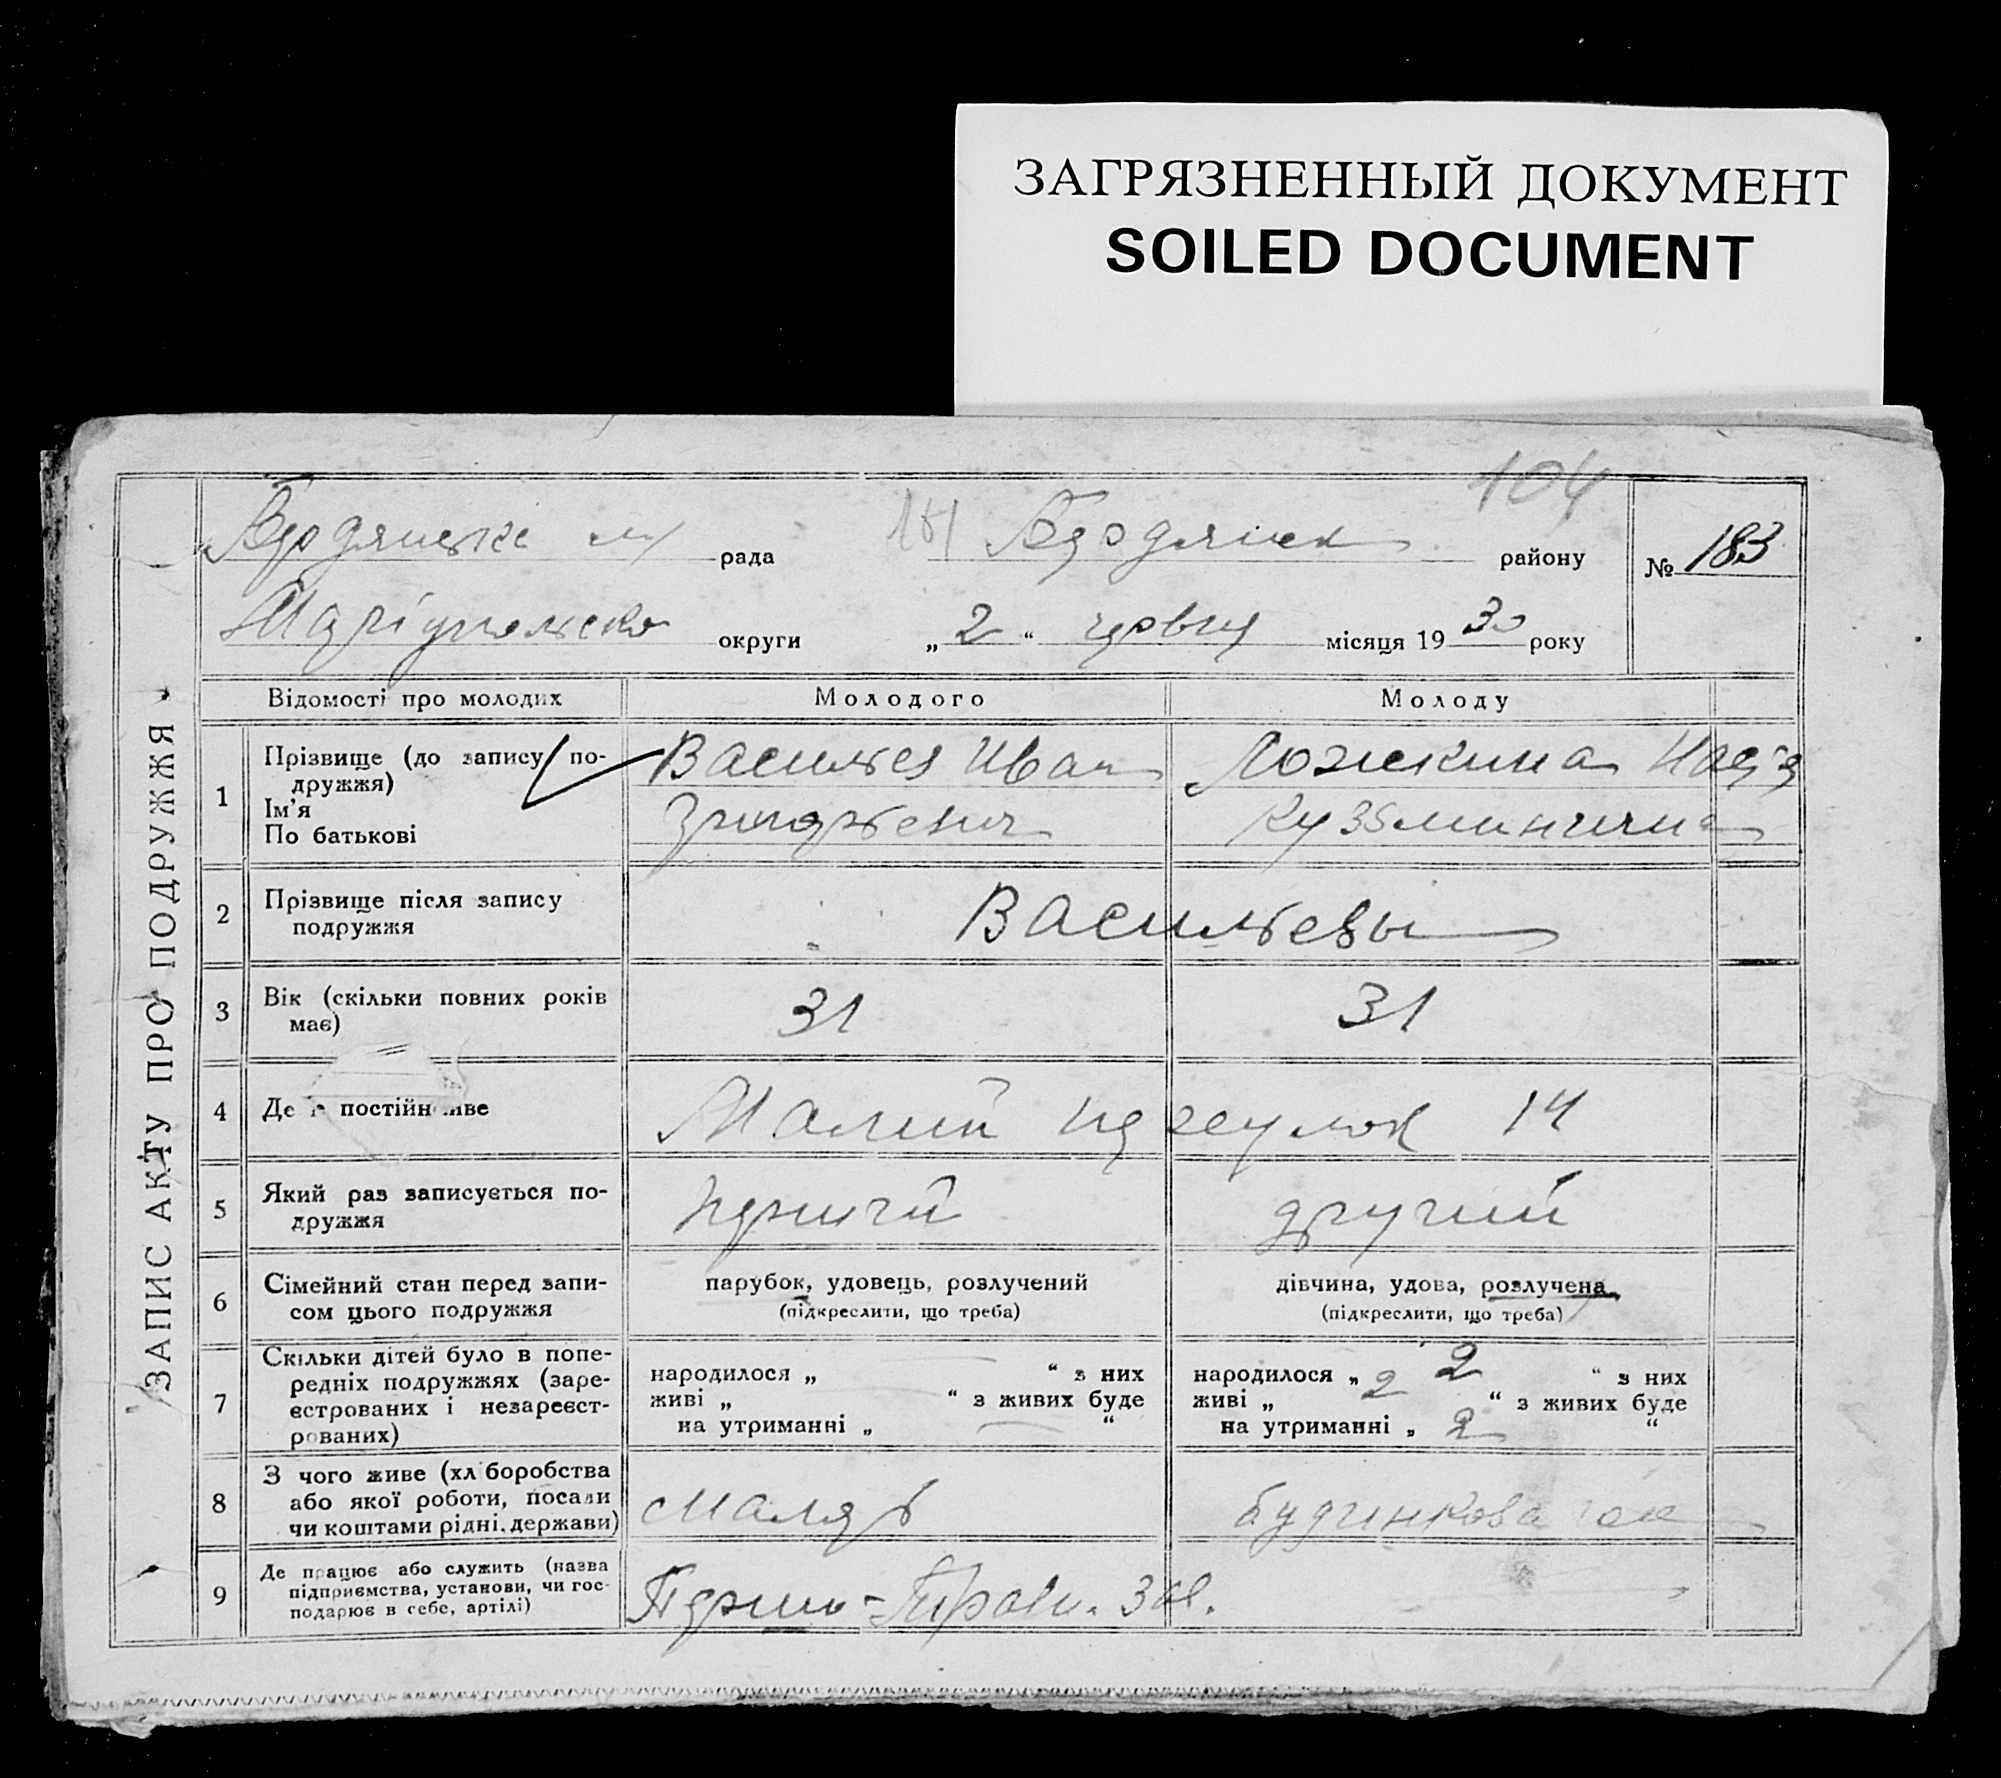 ЗАГРЯЗНЕННЫЙ ДОКУМЕНТ
SOILED DOCUMENT
104
рада
району
№ 183
округи „ 2 “ червня місяця 19 30 року
ЗАПИС АКТУ ПРО ПОДРУЖЖЯ
Відомості про молодих
Молодого
Молоду
1
Прізвище (до запису по-
дружжя)
Ім'я
По батькові
Васильев Иван
Ложкина
Кузьминична
2
Прізвище після запису
подружжя
Васильевы
3
Вік (скільки повних років
має)
31
31
4
Де постійно живе
Малий переулок 14
5
Який раз записується по-
дружжя
перший
другий
6
Сімейний стан перед запи-
сом цього подружжя
парубок, удовець, розлучений
(підкреслити, що треба)
дівчина, удова, розлучена
(підкреслити, що треба)
7
Скільки дітей було в попе-
редніх подружжях (заре-
єстрованих і незареєст-
рованих)
народилося „ “ з них
живі „ “ з живих буде
на утриманні „ “
народилося „ 2 “ з них
живі „ 2 “ з живих буде
на утриманні „ 2 “
8
З чого живе (хліборобства
або якої роботи, посади
чи коштами рідні, держави)
маляр
будинкова
9
Де працює або служить (назва
підприємства, установи, чи гос-
подарює в себе, артілі)